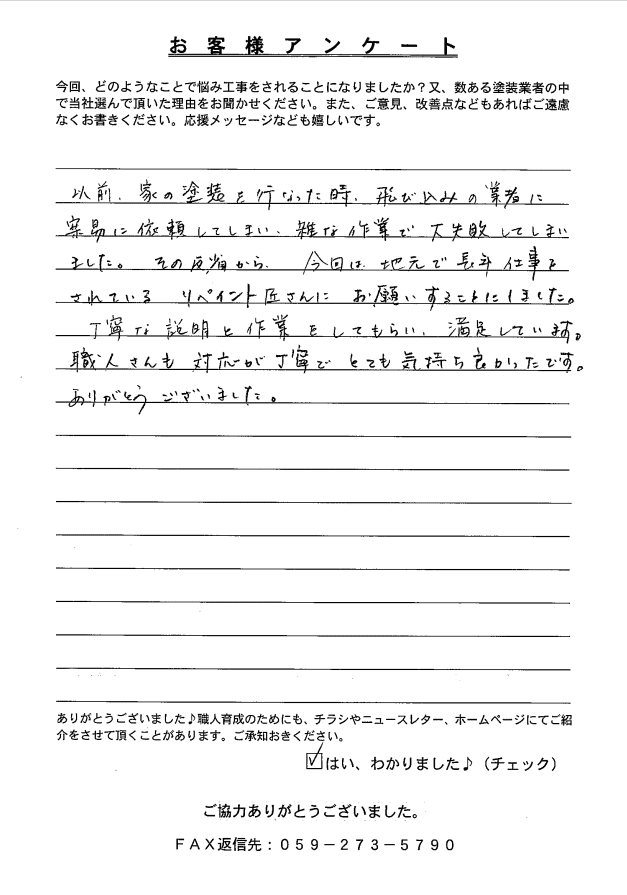 お客様アンケート
今回、どのようなことで悩み工事をされることになりましたか?又、数ある塗装業者の中
で当社選んで頂いた理由をお聞かせください。また、ご意見、改善点などもあればご遠慮
なくお書きください。応援メッセージなども嬉しいです。
以前、家の塗装を行なった時、飛び込みの業者に
容易に依頼してしまい、雑な作業で大失敗してしまい
ました。その反省から、今回は地元で長年仕事を
されているリペイント匠さんにお願いすることにしました。
丁寧な説明と作業をしてもらい、満足しています。
職人さんも対応が丁寧でとても気持ち良かったです。
ありがとうございました。
ありがとうございました♪職人育成のためにも、チラシやニュースレター、ホームページにてご紹
介をさせて頂くことがあります。ご承知おきください。
☑はい、わかりました♪(チェック)
ご協力ありがとうございました。
FAX返信先:059-273-5790